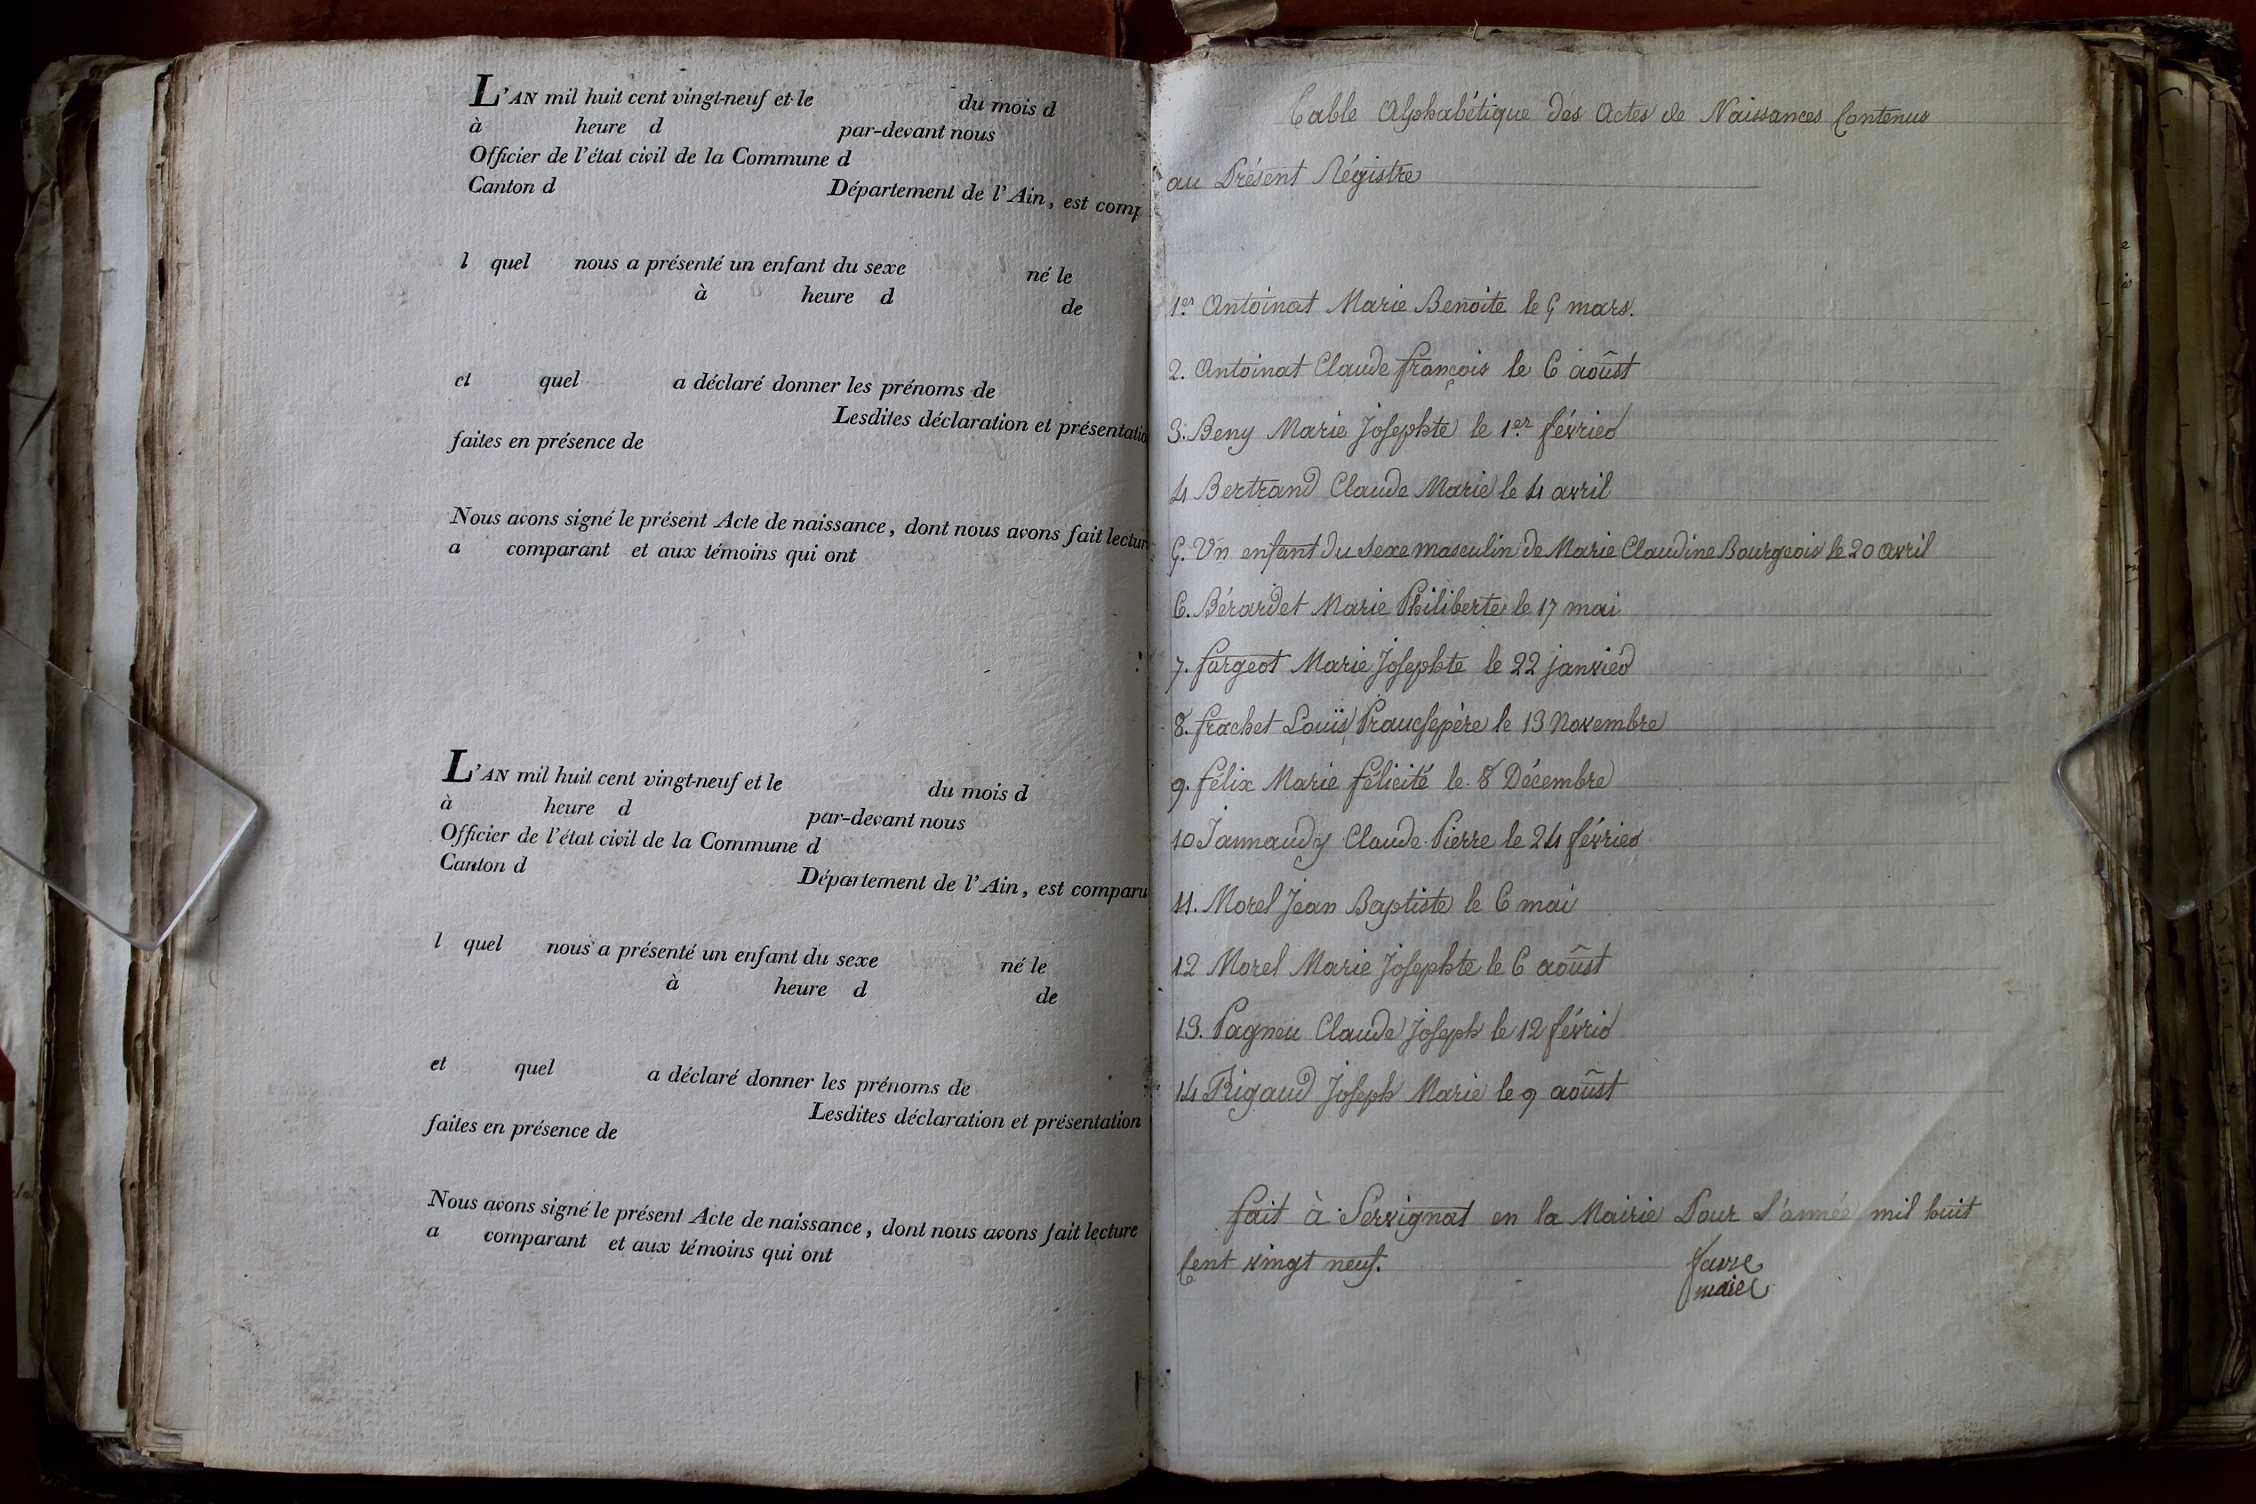 L'AN mil huit cent vingt-neuf et le du mois d
à heure d par-devant nous
Officier de l'état civil de la Commune d
Canton d Département de l'Ain, est comp
l quel nous a présenté un enfant du sexe né le
à heure d de
et quel a déclaré donner les prénoms de
Lesdites déclaration et présentatio
faites en présence de
Nous avons signé le présent Acte de naissance, dont nous avons fait lectur
a comparant et aux témoins qui ont
L'AN mil huit cent vingt-neuf et le du mois d
à heure d par-devant nous
Officier de l'état civil de la Commune d
Canton d Département de l'Ain, est comparu
l quel nous a présenté un enfant du sexe né le
à heure d de
et quel a déclaré donner les prénoms de
Lesdites déclaration et présentation
faites en présence de
Nous avons signé le présent Acte de naissance, dont nous avons fait lecture
a comparant et aux témoins qui ont
Table Alphabétique des Actes de Naissances Contenus
au Présent Régistre
1er Antoinat Marie Benoite le 5 mars.
2. Antoinat Claude françois le 6 aoûst
3. Beny Marie Josephte le 1er février
4 Bertrand Claude Marie le 4 avril
5. Un enfant du sexe masculin de Marie Claudine Bourgeois le 20 avril
6. Bérardet Marie Philiberte le 17 mai
7. fargeot Marie Josephte le 22 janvier
8. frachet Louïs le 13 Novembre
9. félix Marie félicité le 8 Décembre
10 Jannaudy Claude Pierre le 24 février
11. Morel Jean Baptiste le 6 mai
12 Morel Marie Josephte le 6 aoûst
13. Pagneu Claude Joseph le 12 févrir
14 Rigaud Joseph Marie le 9 aoûst
fait à Servignat en la Mairie Pour L'année mil huit
Cent vingt neuf. favre
maire